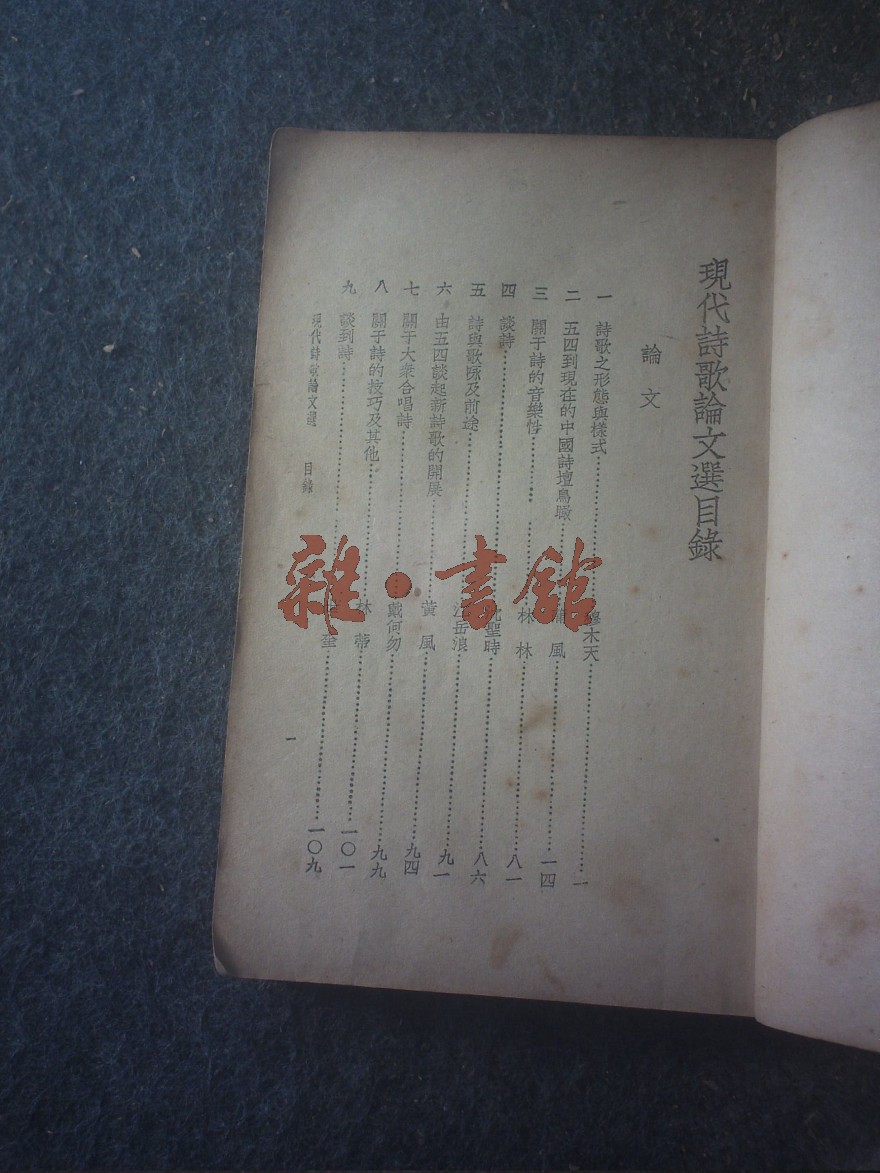 現代詩歌論文選目錄
論文
一 詩歌之形態與樣式……穆木天……一
二 五四到現在的中國詩壇鳥瞰……風……一四
三 關于詩的音樂性……林林……八一
四 談詩……聖時……八六
五 詩與歌底及前途……江岳浪……九一
六 由五四談起新詩歌的開展……黃風……九四
七 關于大衆合唱詩……戴何勿……九九
八 關于詩的技巧及其他……林蒂……一〇一
九 談到詩……一〇九
現代詩歌論文選 目錄
一
雜·書館